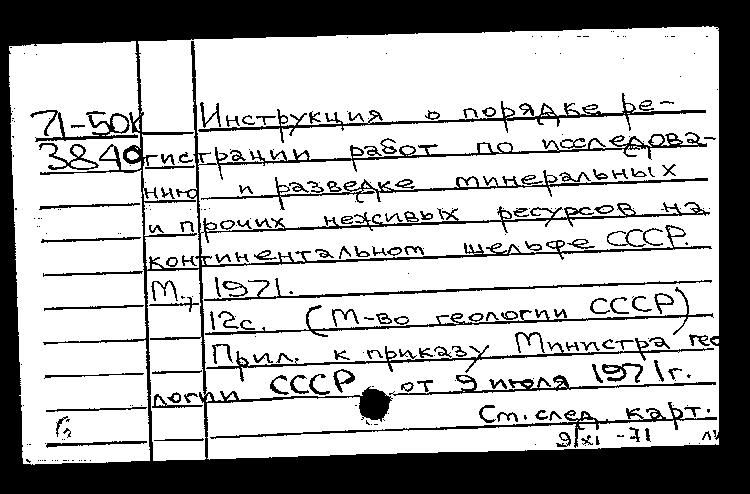 71-50К Инструкция о порядке ре-
3840 гистрации работ по исследова-
нию и разведке минеральных
и прочих неживых ресурсов на
континентальном шельфе СССР.
М., 1971.
12с. (М-во геологии СССР)
Прил. к приказу Министра гео
логии СССР от 9 июля 1971г.
См. след. карт.
9/XI -71